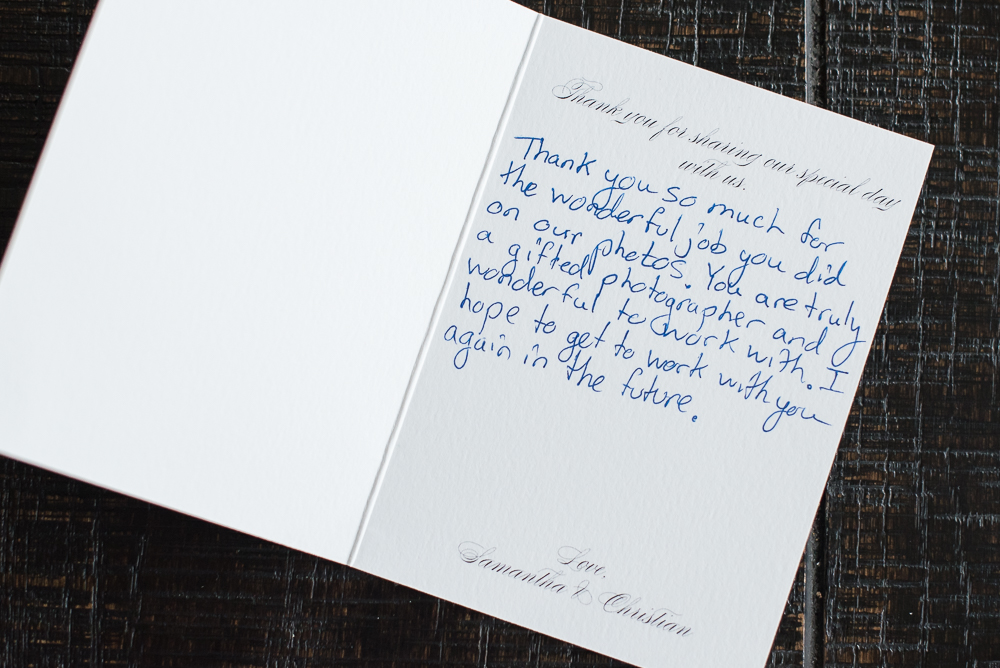 Thank you for sharing our special day
with us.
Thank you so much for
the wonderful job you did
on our photos. You are truly
a gifted photographer and
wonderful to work with. I
hope to get to work with you
again in the future.
Love,
Samantha & Christian